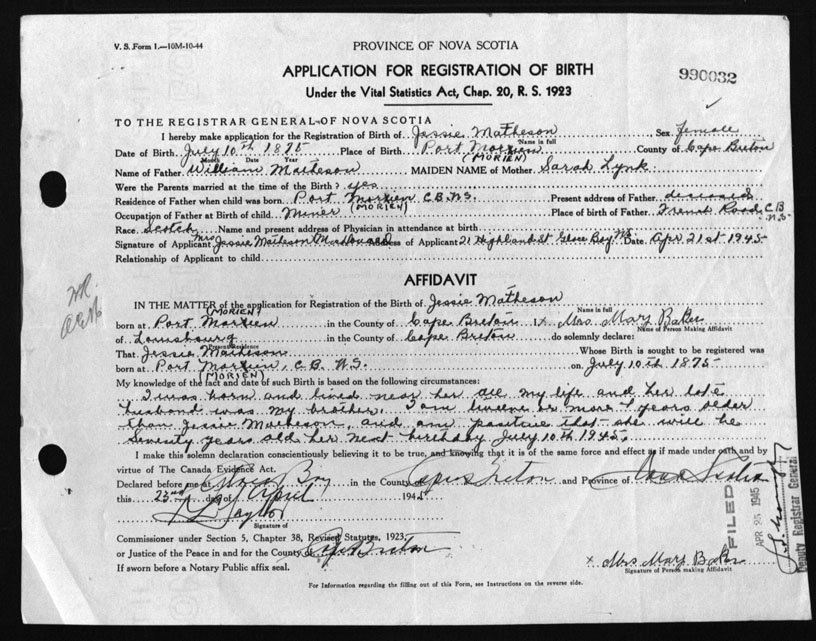 V. S. Form 1.—10M-10-44
PROVINCE OF NOVA SCOTIA
APPLICATION FOR REGISTRATION OF BIRTH
990032
Under the Vital Statistics Act, Chap. 20, R. S. 1923
TO THE REGISTRAR GENERAL OF NOVA SCOTIA
I hereby make application for the Registration of Birth of Jessie Matheson Sex female
Name in full
Date of Birth July 10th 1875 Place of Birth Port Morien County of Cape Breton
Month Date Year (MORIEN)
Name of Father William Matheson MAIDEN NAME of Mother Sarah Lynk
Were the Parents married at the time of the Birth? yes
Residence of Father when child was born Port Morien C.B. N.S. Present address of Father deceased
(MORIEN)
Occupation of Father at Birth of child Miner Place of birth of Father French Road C B N.S
Race Scotch Name and present address of Physician in attendance at birth
Signature of Applicant Mrs Jessie Matheson MacDonald Address of Applicant 21 Highland St Glace Bay N.S. Date Apr 21st 1945
Relationship of Applicant to child
AFFIDAVIT
IN THE MATTER of the application for Registration of the Birth of Jessie Matheson
(MORIEN) Name in full
born at Port Morien in the County of Cape Breton I x Mrs. Mary Baker
Name of Person Making Affidavit
of Louisbourg in the County of Cape Breton do solemnly declare:
Present Residence
That Jessie Matheson Whose Birth is sought to be registered was
born at Port Morien, C.B. N.S. on July 10th 1875
(MORIEN)
My knowledge of the fact and date of such Birth is based on the following circumstances:
I was born and lived near her all my life and her late
husband was my brother. I am twelve or more years older
than Jessie Matheson, and am positive that she will be
seventy years old her next birthday July 10th 1945.
I make this solemn declaration conscientiously believing it to be true, and knowing that it is of the same force and effect as if made under oath and by
virtue of The Canada Evidence Act.
Declared before me at Glace Bay in the County of Cape Breton and Province of Nova Scotia
this 23rd day of April 194
Signature of
Commissioner under Section 5, Chapter 38, Revised Statutes, 1923,
or Justice of the Peace in and for the County of Cape Breton
If sworn before a Notary Public affix seal.
x Mrs Mary Baker
Signature of Person making Affidavit
FILED
APR 25 1945
Deputy Registrar General
For Information regarding the filling out of this Form, see Instructions on the reverse side.